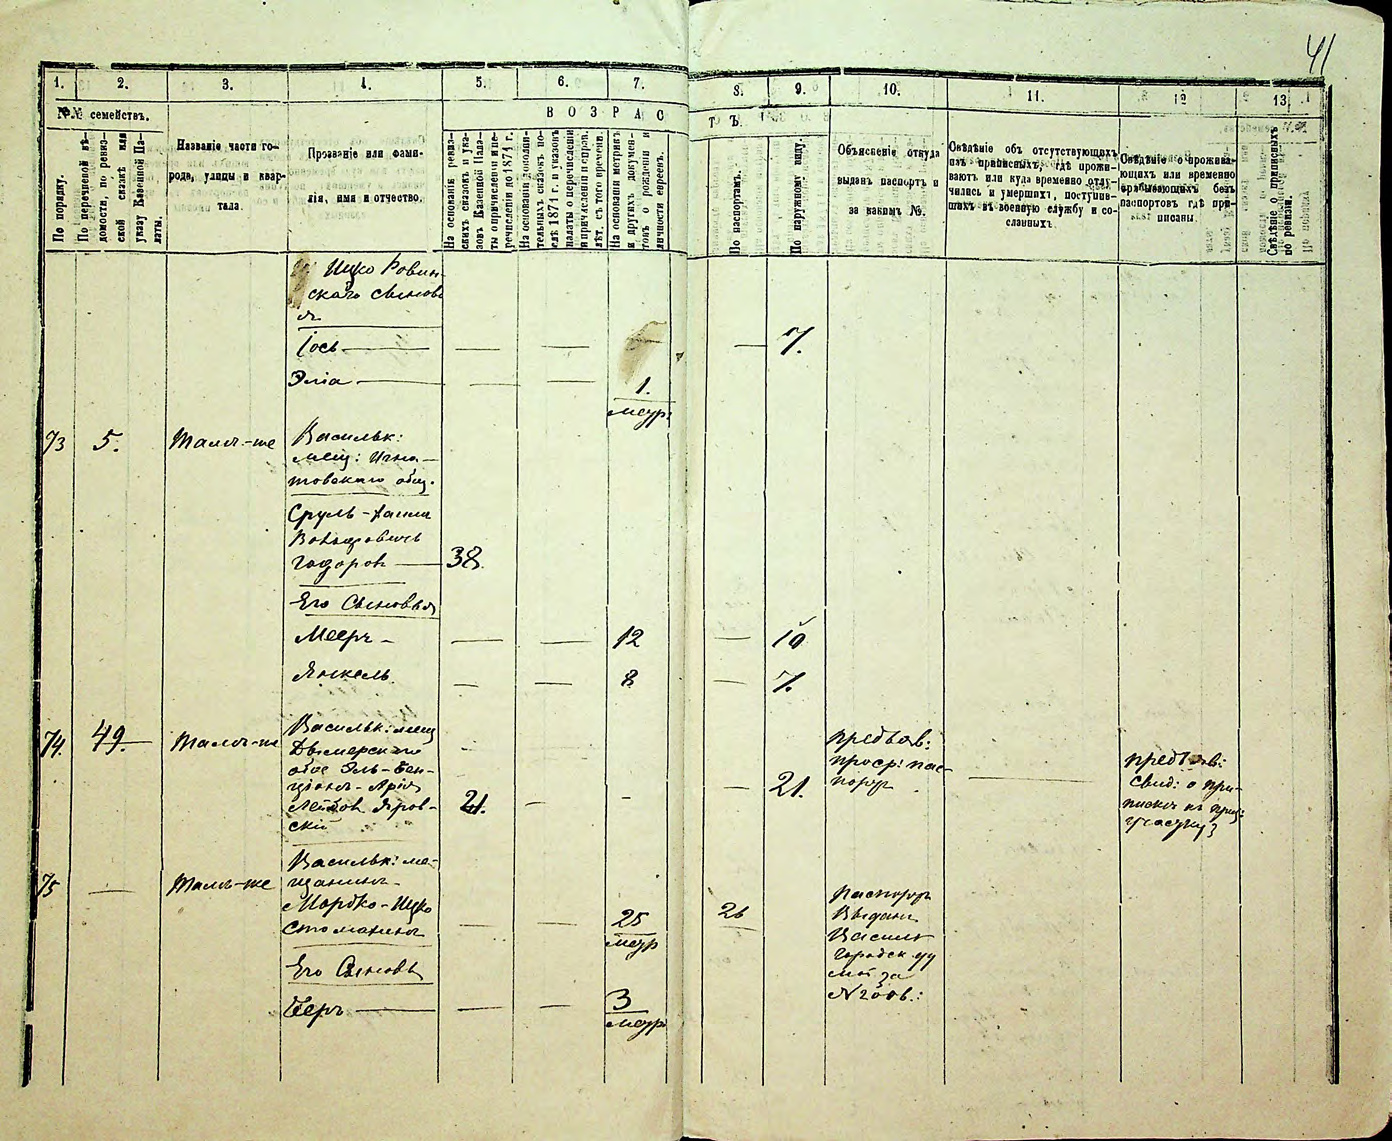 41
1.
2.
3.
4.
5.
6.
7.
8.
9.
10.
11.
12
13.
№№ семействъ.
В О З Р А С
Т Ъ.
По порядку.
По перечневой вѣ-
домости, по ревиз-
ской сказкѣ или
указу Казенной Па-
латы.
Названіе части го-
рода, улицы и квар-
тала.
Прозваніе или фами-
лія, имя и отчество.
На основаніи ревиз-
скихъ сказокъ и ука-
зовъ Казенной Пала-
ты о причисленіи и пе-
речисленіи до 1874 г.
На основаніи дополни-
тельныхъ сказокъ по-
слѣ 1874 г. и указовъ
палаты о перечисленіи
и причисленіи и справ.
лѣт. съ того времени.
На основаніи метрикъ
и другихъ докумен-
товъ о рожденіи и
личности евреевъ.
По паспортамъ.
По наружному виду.
Объясненіе откуда
выданъ паспортъ и
за какимъ №.
Свѣдѣніе объ отсутствующихъ
изъ приписныхъ, гдѣ прожи-
ваютъ или куда временно отлу-
чились и умершихъ, поступив-
шихъ въ военную службу и со-
сланныхъ.
Свѣдѣніе о прожива-
ющихъ или временно
пребывающихъ безъ
паспортовъ гдѣ при-
писаны.
Свѣдѣніе о приписныхъ
по ревизіи.
Ицко Ровин-
скаго сынов
я
Іось — — 6 — 7.
Эліа — — — 1.
метр:
73 5. Тамъ-же Васильк:
мещ: Игна-
товскаго общ.
Сруль-
Вольфовичъ
Годоров 38.
Его Сыновья
Мееръ — — — 12 — 10
Янкель — — 8. — 7.
74. 49. Тамъ-же Васильк: мещ
Дымерскаго
общ Эль-Бен-
ціонъ-Арія
Лейбов Яров-
скій 21. — — — 21.
предъяв:
проср: пас-
порт —
предъяв:
свид: о при-
пискѣ къ приз:
участку
75 — Тамъ-же Васильк: ме-
щанинъ
Мордко-Ицко
Стоманинъ — — 25
метр 26
Паспорт
Выданъ
Васильк
Городск. уп
за
№
Его Сыновь
Беръ — — — 3
метр